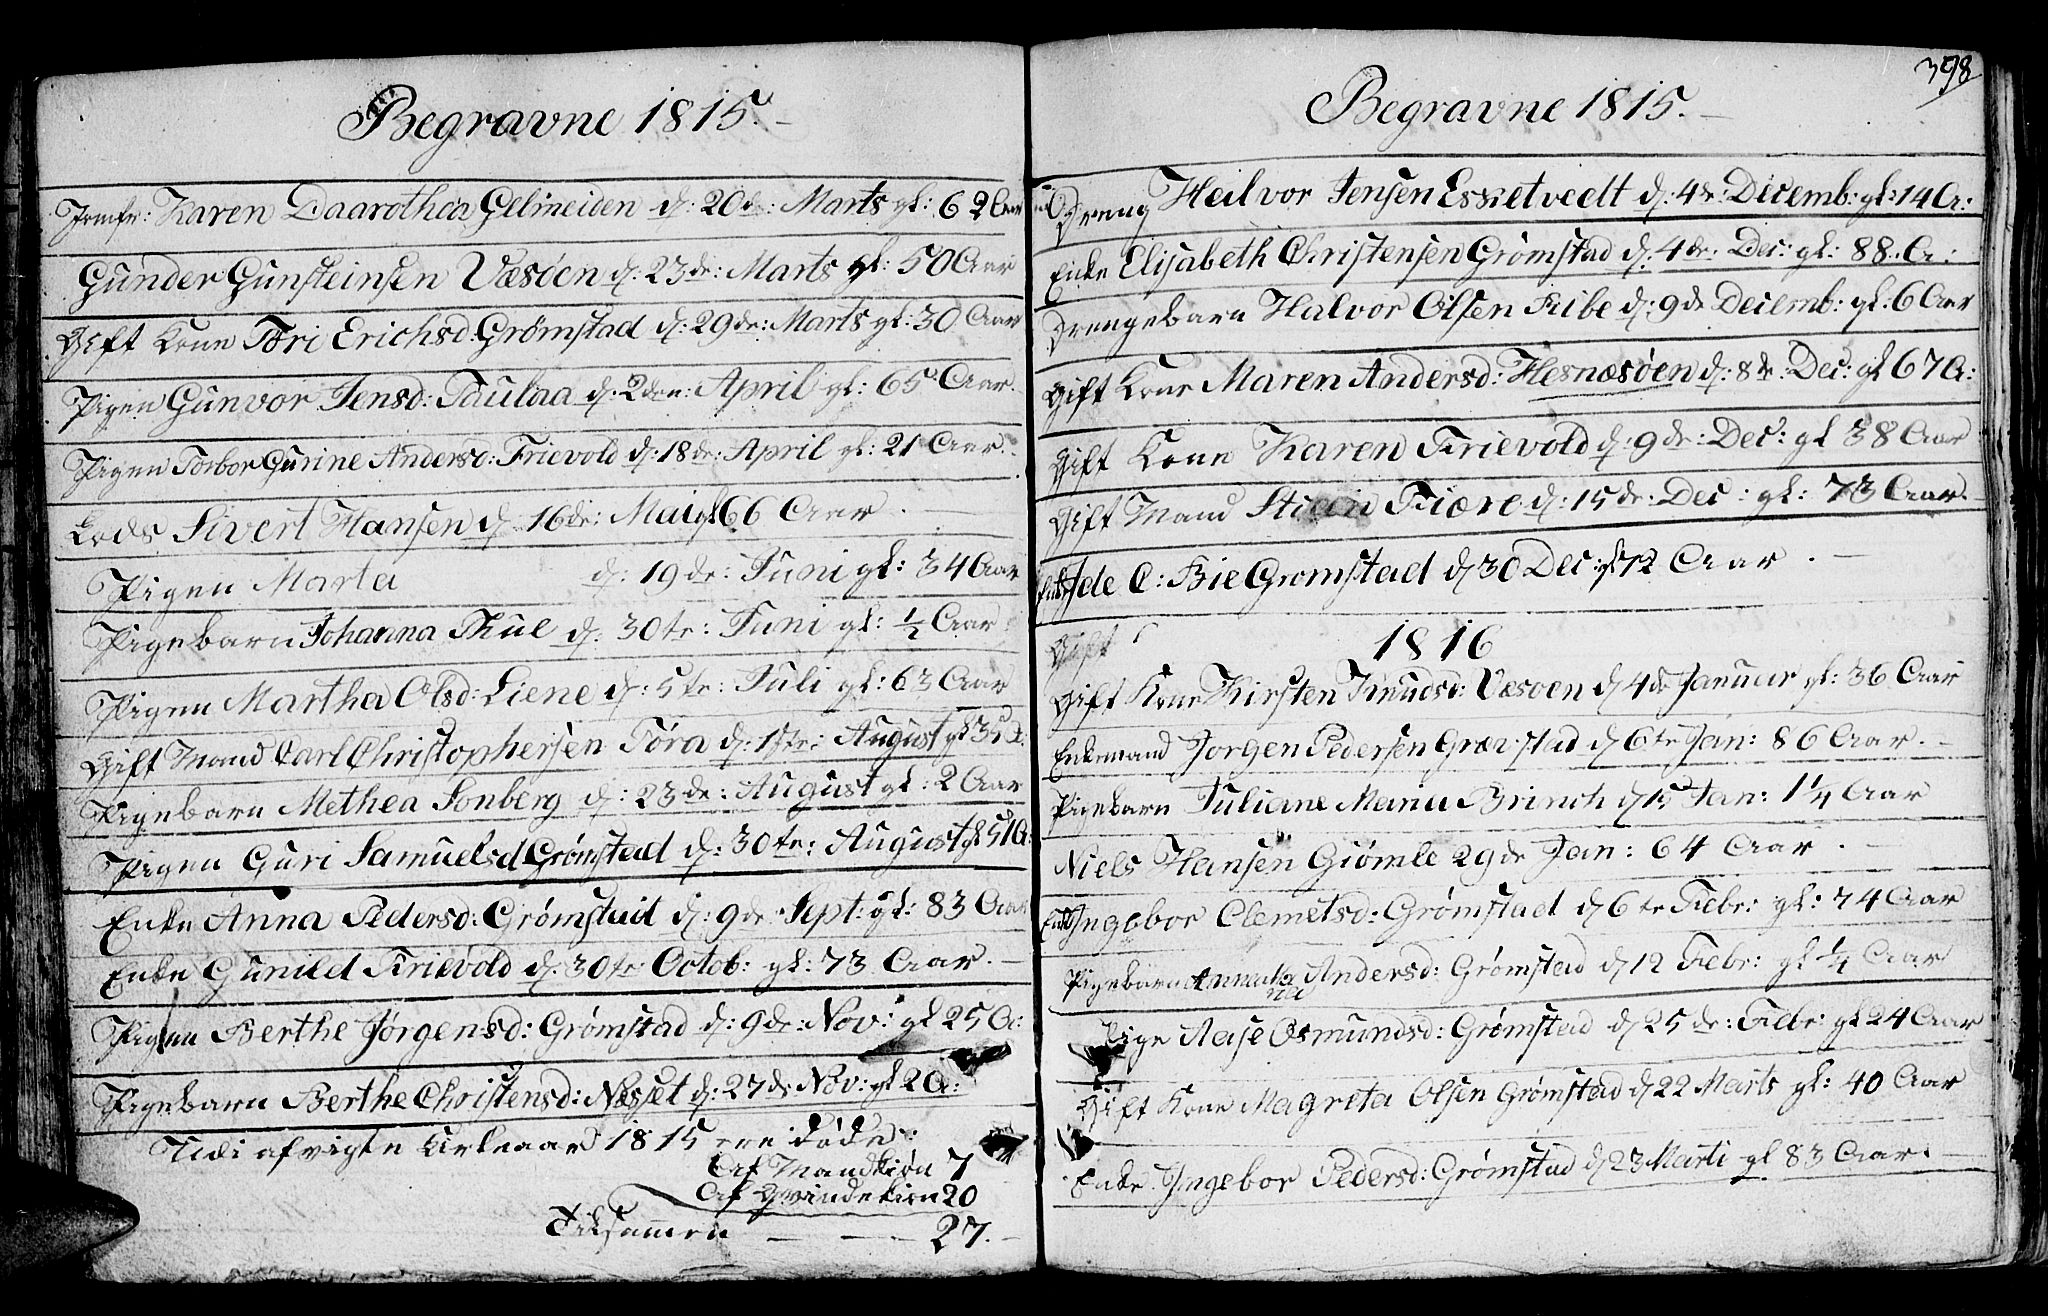 Begravne 1815.
Jomfr: Karen Daarothea Gelmeiden d: 20de: Marts gl: 62 Aar
Gunder Gunsteinsen Væsøen d: 23de: Marts gl: 50 Aar
Gift Kone Tøri Erichsd: Grømstad d: 29de: Marts gl: 30 Aar
Pigen Gunvor Jensd: Taulaa d. 2den: April gl: 65 Aar.
Pigen Torbor Gurine Andersd: Frievold d: 18de: April gl: 21 Aar.
Lods Sivert Hansen d. 16de: Mai gl 66 Aar.
Pigen Marta d: 19de: Juni gl: 34 Aar
Pigebarn Johanna Thue d: 30te: Juni gl: ½ Aar
Pigen Martha Olsd: Liene d: 5te: Juli gl: 63 Aar
Gift Mand Carl Christophersen Torå d: 1ste: August gl 35 A:
Pigebarn Methea Sonberg d: 23de: August gl: 2 Aar
Pigen Guri Samuelsd Grømstad d: 30te: August gl 51 A:
Enke Anna Pedersd: Grømstad d: 9de: Sept: gl: 83 Aar
Enke Gunild Frievold d. 30te: Octob: gl: 73 Aar.
Pigen Berthe Jørgensd: Grømstad d: 9de: Nov: gl 25 A:
Pigebarn Berthe Christensd: Næsset d: 27de Nov: gl 2 A:
I det afvigte Kirkeaar 1815 ere døde:
Af Mandkiøn 7
Af Qvindekiøn 20
Tilsamen 27.
398
Begravne 1815.
Dreng Heilvor Jensen Essietveelt d: 4de: Decemb: gl: 14 A:
Enke Elisabeth Christensen Grømstad d: 4de: Dec: gl: 88. A:
Drengebarn Halvor Olsen Fiibe d: 9de Decemb: gl: 6 Aar
Gift Kone Maren Andersd: Hesnæsøen d: 8de: Dec: gl 67 A:
Gift Kone Karen Frievold d: 9de: Dec: gl 38 Aar
Gift Mand Fiære d: 15de: Dec: gl: 73 Aar.
Enke C: Bie Gromstad d 30 Dec: gl 72 Aar.
Gift
1816
Gift Kone Kirsten Knudsd: Væsøen d 4de Januar gl: 36 Aar
Enkemand Jorgen Pedersen Grøvstad d 6te Jan: 86 Aar.
Pigebarn Juliane Maria Brinch d 15 Jan: 1¼ Aar
Niels Hansen Giømle 29de Jan: 64 Aar.
Enke Ingebor Clemetsd: Grømstad d 6te Febr: gl: 74 Aar
Pigebarn Andersd: Grømstad d 12 Febr: gl ¼ Aar
Pige Aase Osmundsd: Grømstad d 25de: Febr: gl 24 Aar
Gift Kone Magreta Olsen Grømstad d 22 Marts gl: 40 Aar
Enke Ingebor Pedersd: Grømstad d 23 Marti gl 83 Aar.